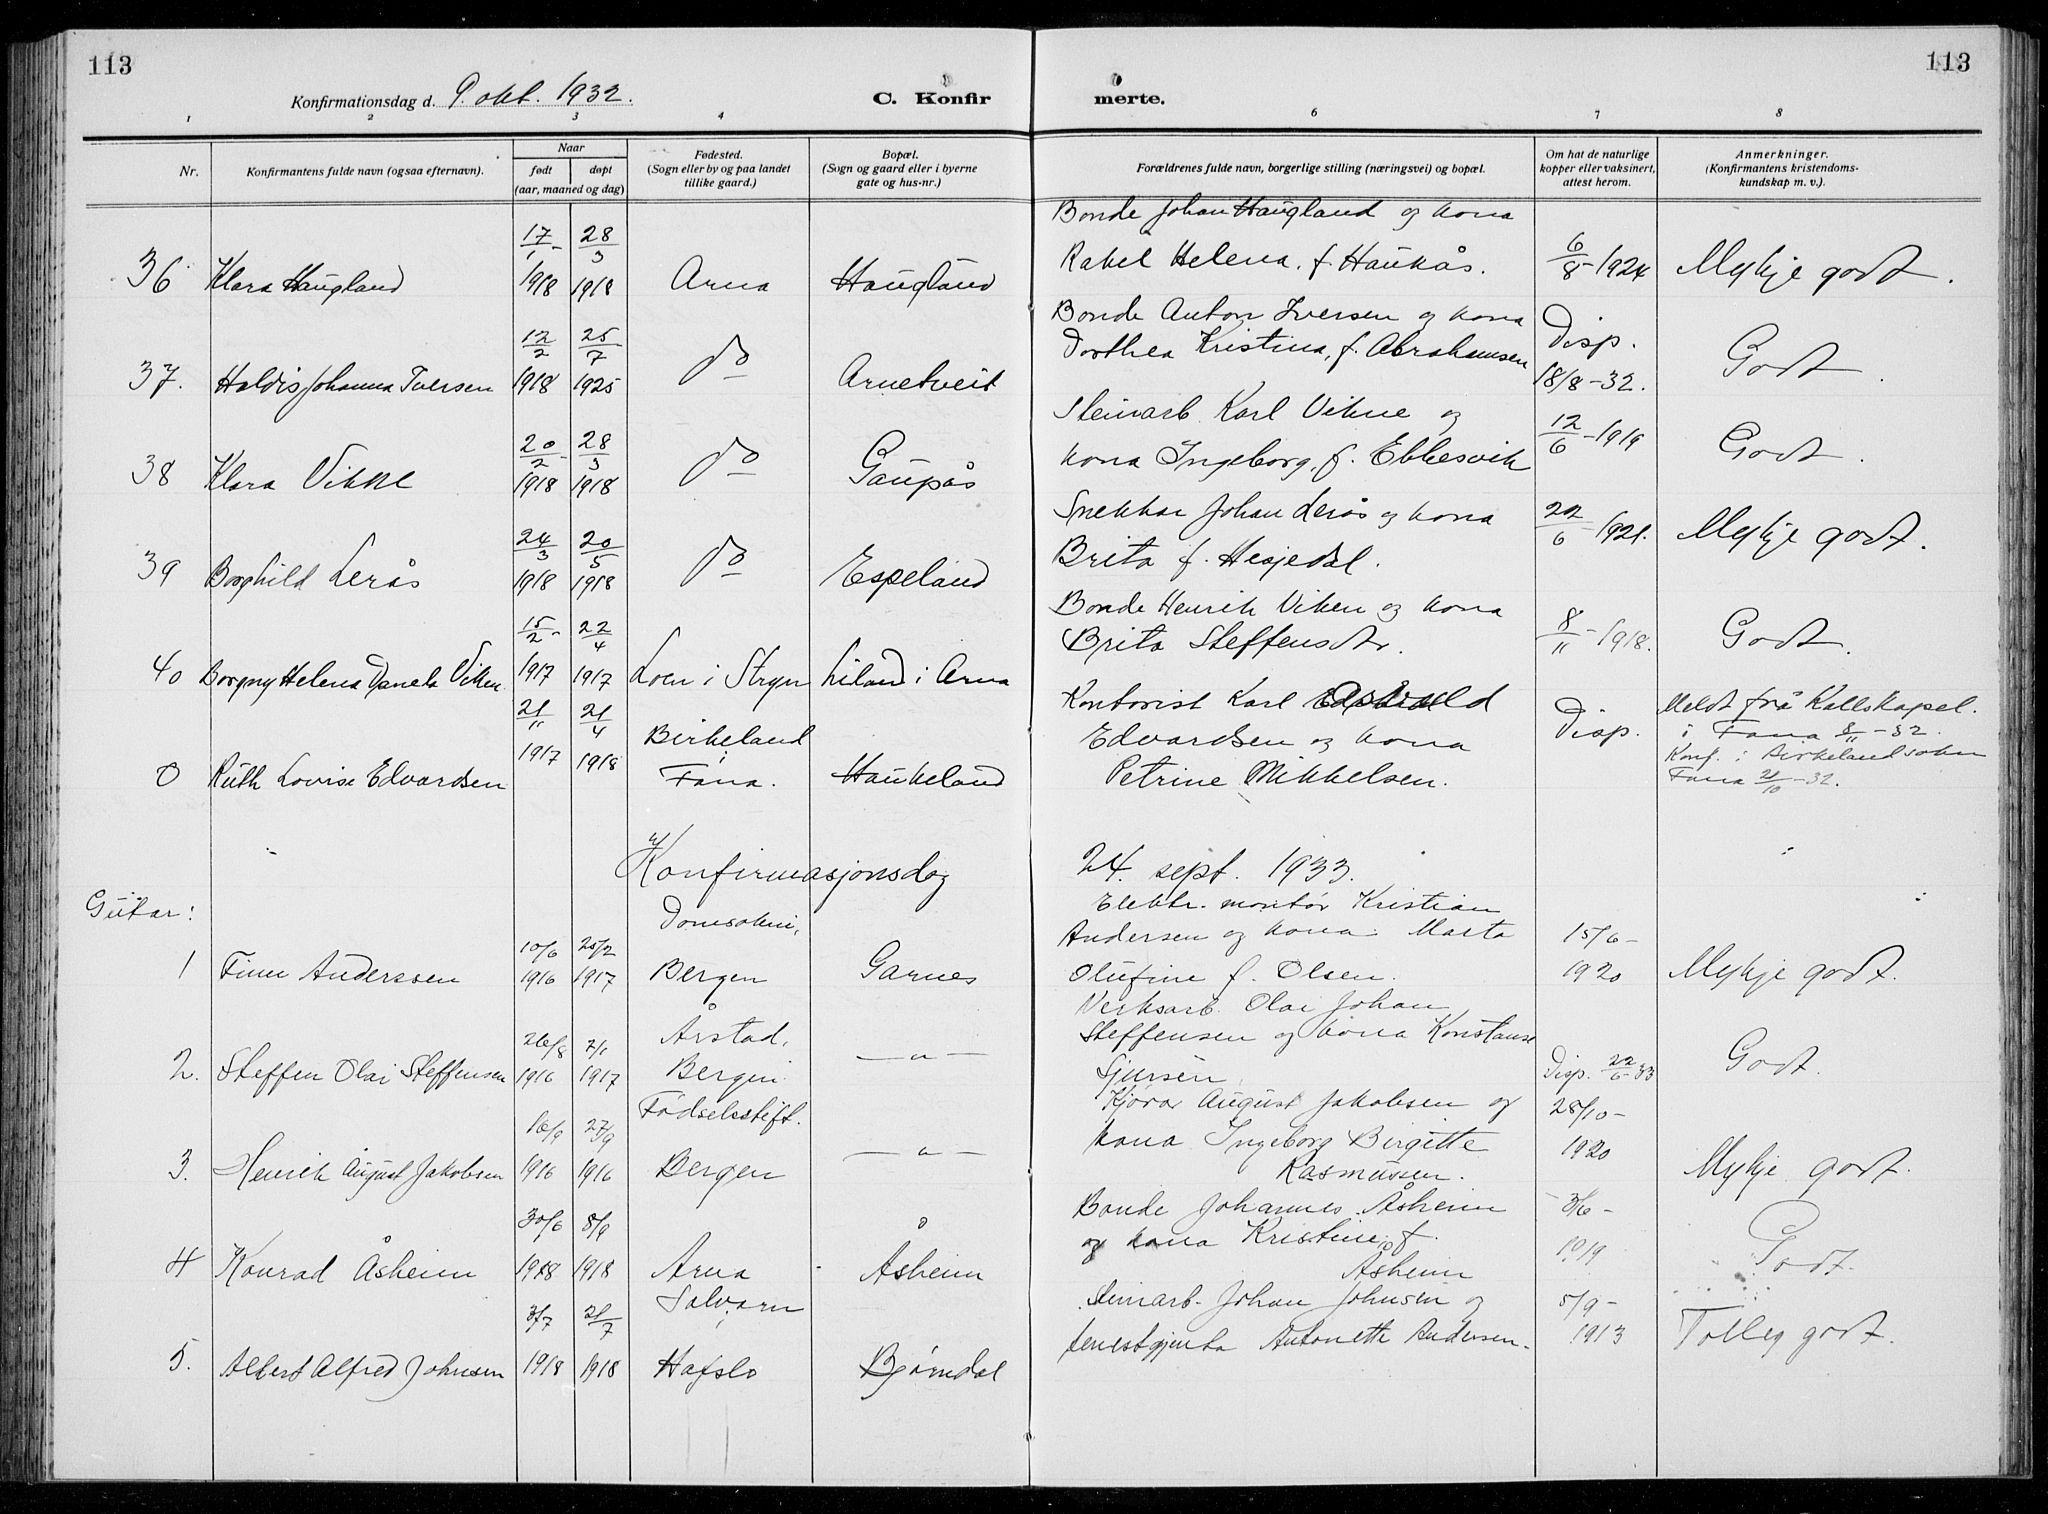 113
113
Konfirmationsdag d. 9. okt. 1932.
C. Konfir merte.
1 2 3 4 6 7 8
Nr.
Konfirmantens fulde navn (ogsaa efternavn).
Naar
født
døpt
(aar, maaned og dag)
Fødested.
(Sogn eller by og paa landet
tillike gaard.)
Bopæl.
(Sogn og gaard eller i byerne
gate og hus-nr.)
Forældrenes fulde navn, borgerlige stilling (næringsvei) og bopæl.
Om hat de naturlige
kopper eller vaksinert,
attest herom.
Anmerkninger.
(Konfirmantens kristendoms-
kundskap m. v.).
36 Klara Haugland 17/1- 1918 28/3 1918 Arna Haugland
Bonde Johan Haugland og kona
Rakel Helena, f. Haukås. 6/8-1924 Mykje godt.
37. Haldis Johanna Iversen 12/2 1918 25/7 1925 do Arnetveit
Bonde Anton Iversen og kona
Dorthea Kristina, f. Abrahamsen Disp. 18/8-32. Godt.
38 Klara Vikne 20/2- 1918 28/3 1918 do Gaupås
Steinarb. Karl Vikne og
kona Ingeborg, f. Ebbesvik 12/6-1919 Godt.
39 Borghild Lerås 24/3 1918 20/5 1918 do Espeland
Snekkar Johan Lerås og kona
Brita f. Hesjedal. 22/6-1921. Mykje godt.
40 Borgny Helena Viken 15/2- 1917 22/4 1917 Loen i Stryn Liland i Arna
Bonde Henrik Viken og kona
Brita Steffensdtr. 8/11-1918. Godt.
0 Ruth Lovise Edvardsen 21/11 1917 21/4 1918 Birkeland Fana. Haukeland
Kontorist Karl
Edvardsen og kona
Petrine Mikkelsen. Disp.
Meldt frå Kallskapel.
i Fana 8/11-32.
Konf. i Birkeland sokn
Fana 21/10-32.
Konfirmasjonsdag 24. sept. 1933.
Gutar:
1 Finn Anderssen 10/6 1916 25/2 1917 Domsokni, Bergen Garnes
Elektr. montør Kristian
Andersen og kona Marta
Olufine f. Olsen. 15/6- 1920 Mykje godt.
2. Steffen Olai Steffensen 26/8 1916 7/1 1917 Årstad, Bergen — " —
Verksarb. Olai Johan
Steffensen og kona Konstanse
Sjursen. Disp. 22/6-33 Godt.
3. Henrik August Jakobsen 16/9 1916 27/9 1916 Fødselsstift. Bergen — " —
Kjørar August Jakobsen og
kona Ingeborg Birgitte
Rasmussen. 28/10- 1920 Mykje godt.
4 Konrad Åsheim 30/6 1918 8/9 1918 Arna Åsheim
Bonde Johannes Åsheim
og kona Kristine f.
Åsheim 3/6- 1919 Godt.
5. Albert Alfred Johnsen 3/7 1918 21/7 1918 Solvorn, Hafslo Bjørndal
Steinarb. Johan Johnsen og
tenestgjenta Antonette Andersen. 5/9- 1913 Tolleg godt.